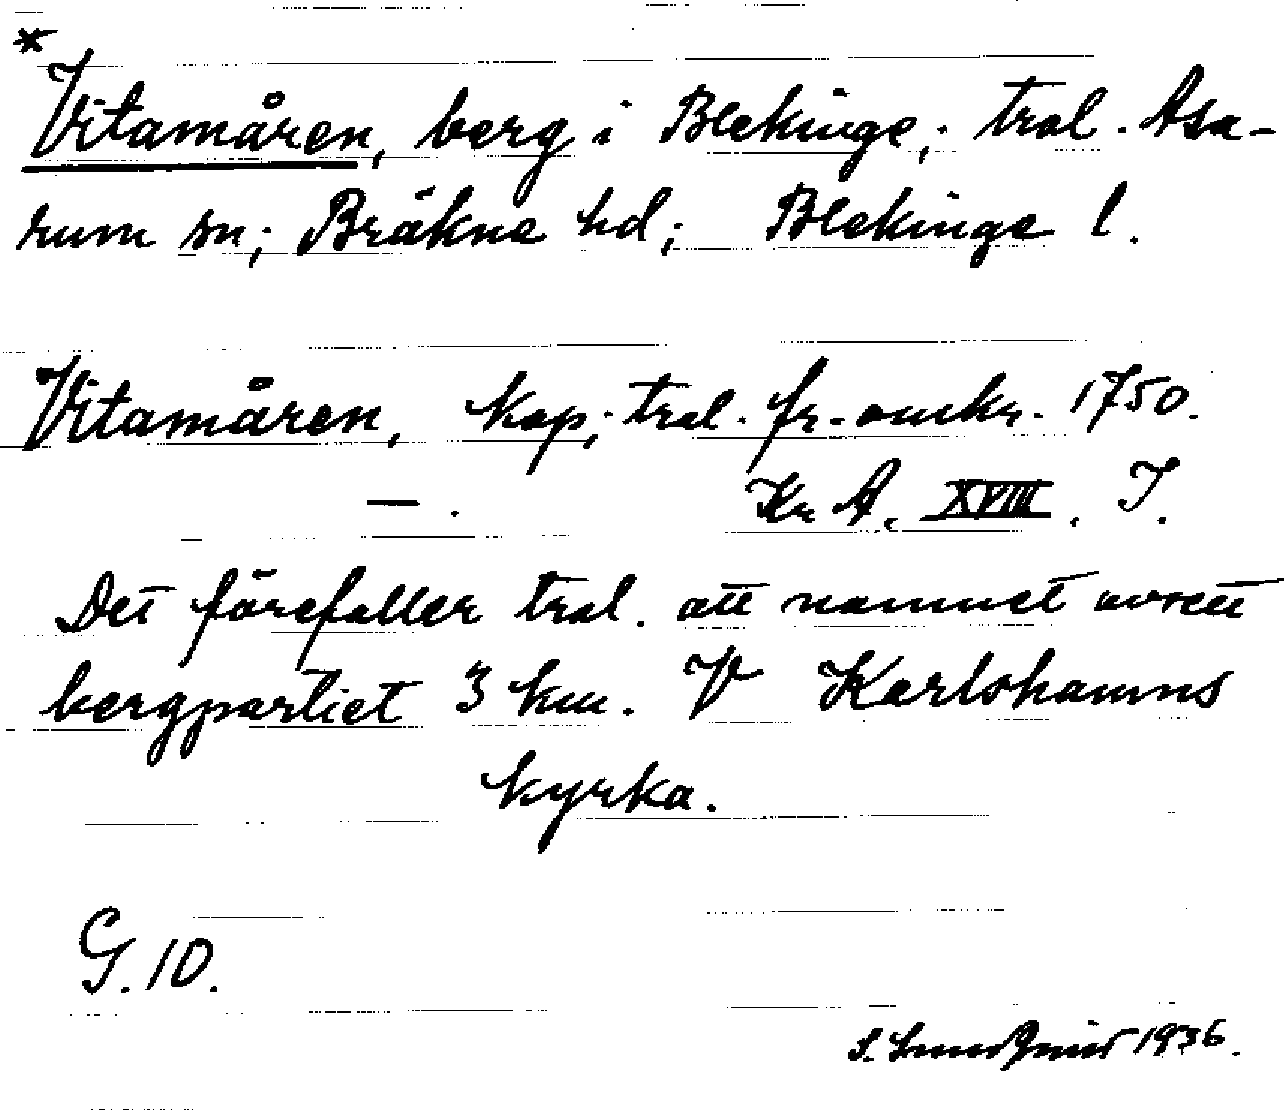 *
Vitamåren, berg i Blekinge; trol. Asa-
rum sn; Bräkne hd; Blekinge l.
Vitamåren, kap; trol. fr. omkr. 1750.
— . Kr A. XVIII. I.
Det förefaller trol. att namnet avsett
bergpartiet 3 km. V Karlshamns
kyrka.
G. 10.
S. 1936.